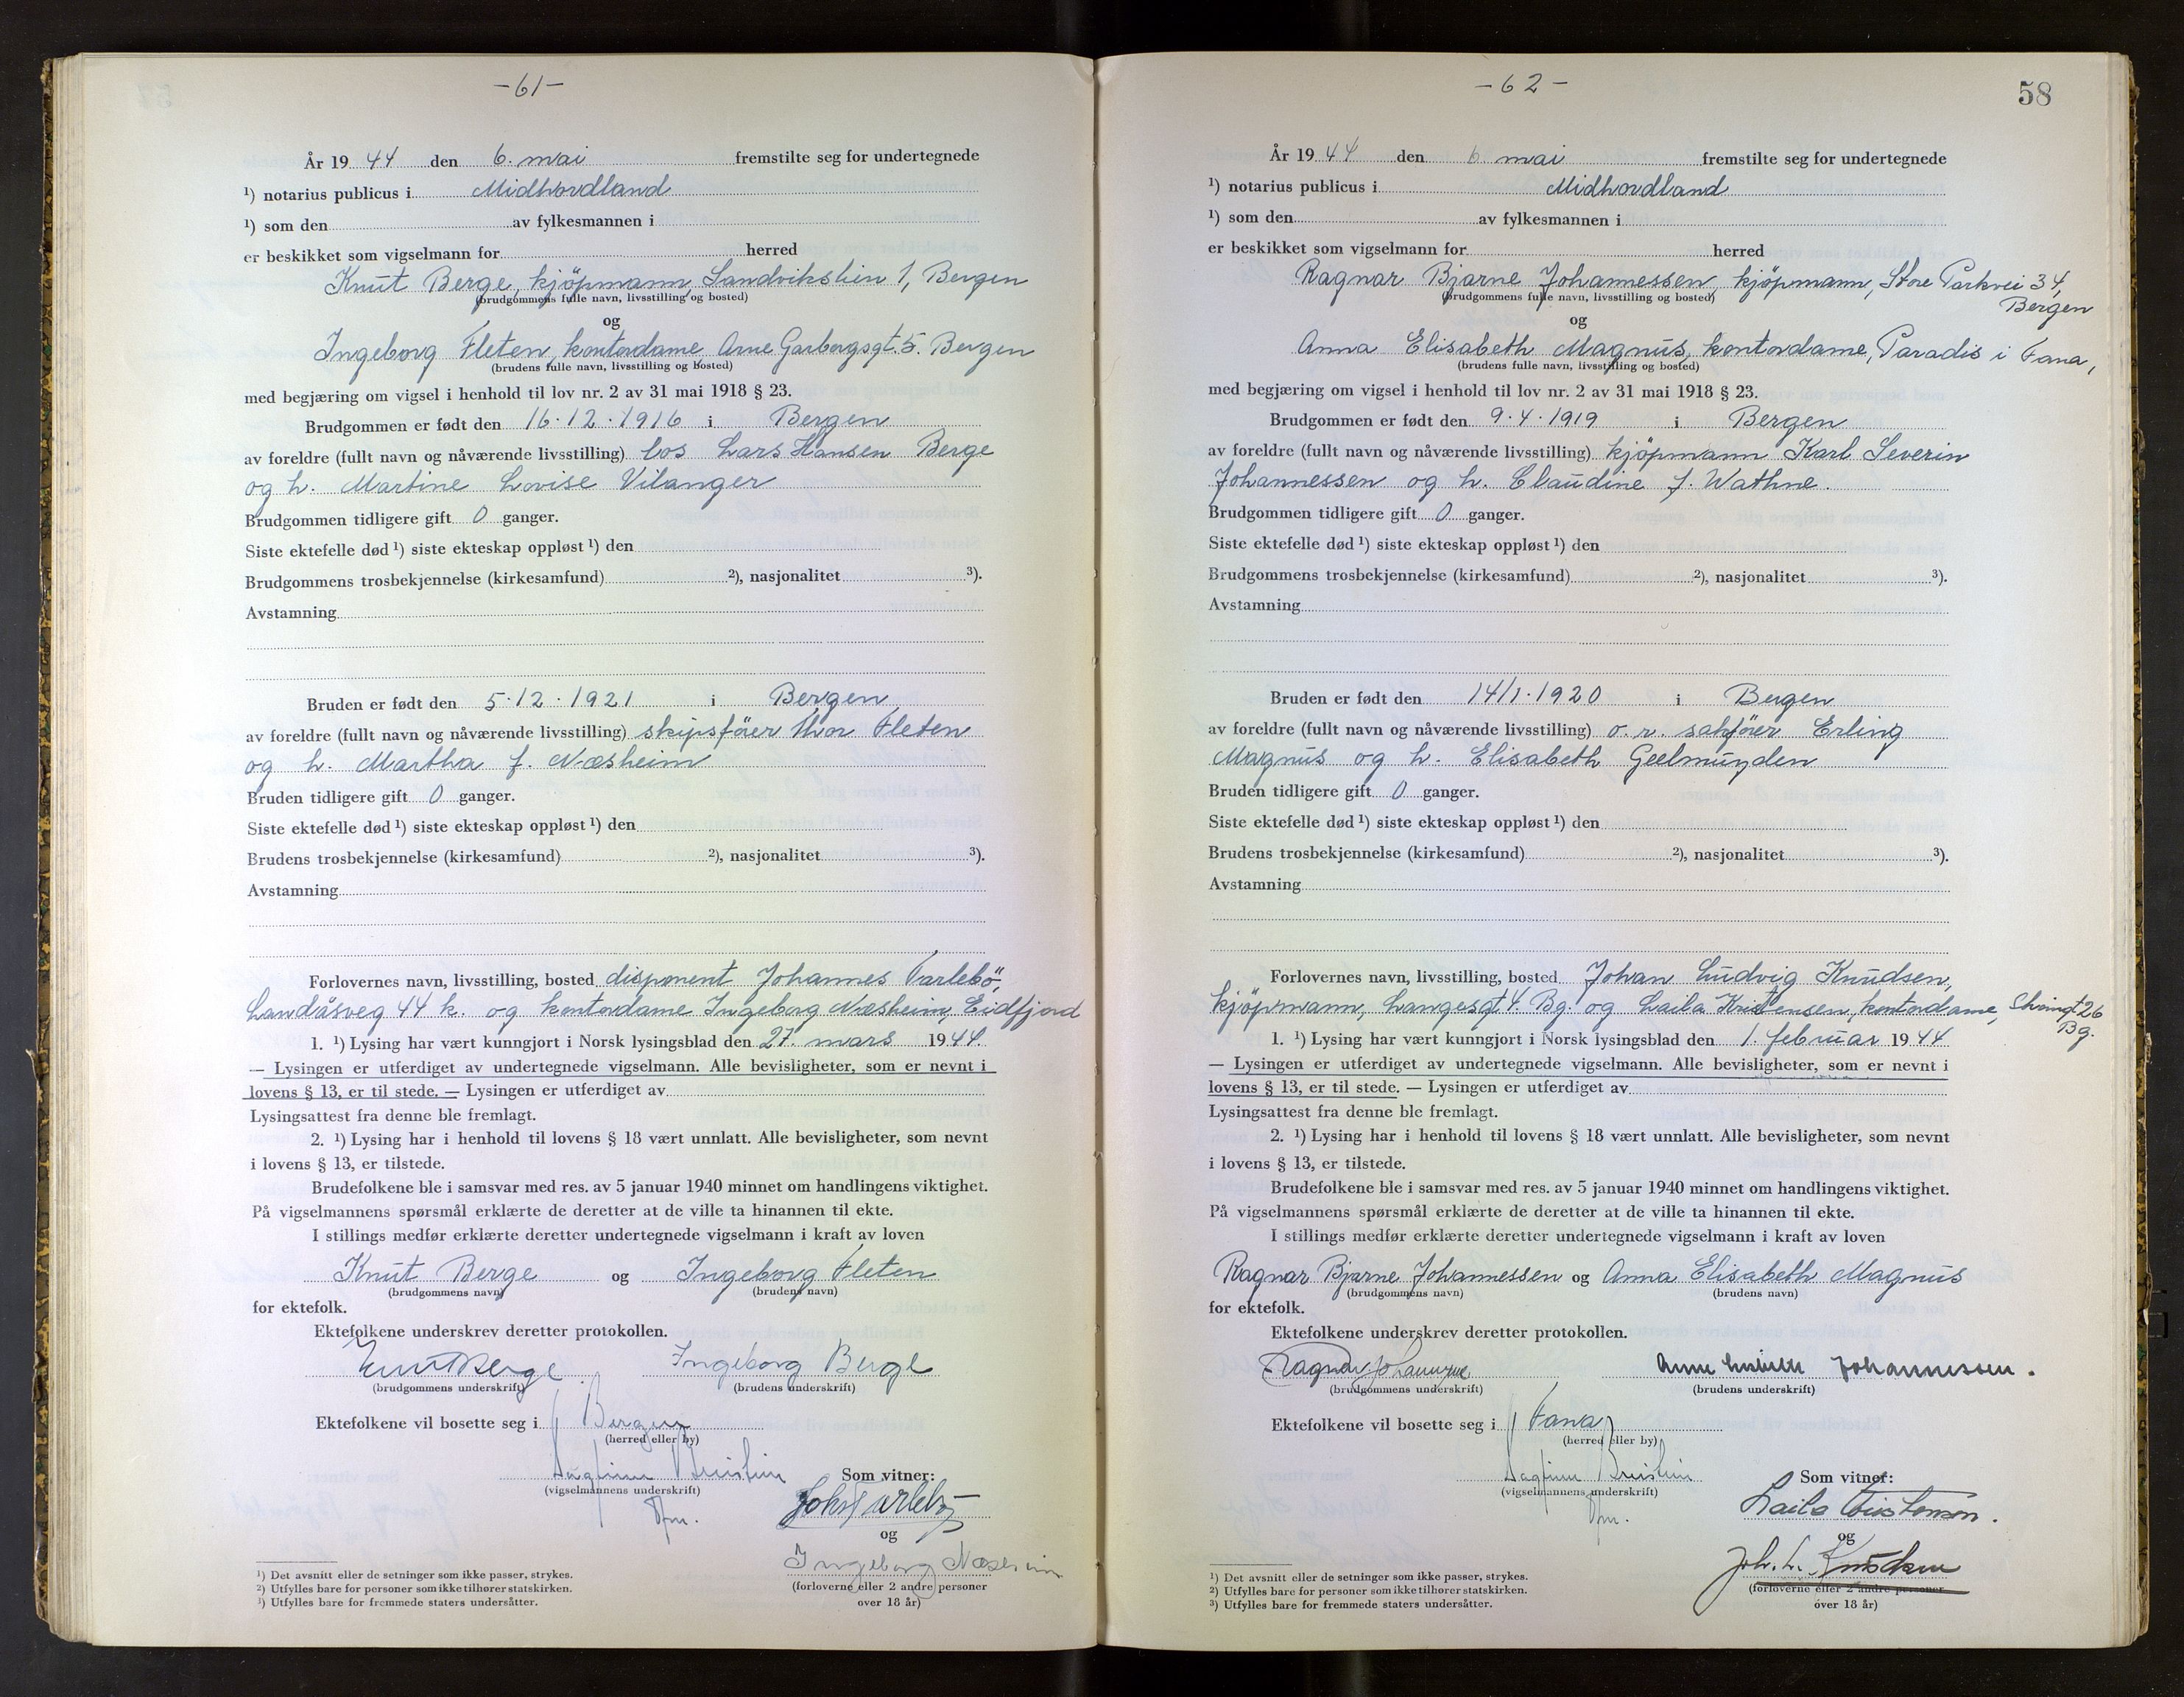 -61-
År 19 44 den 6. mai fremstilte seg for undertegnede
¹) notarius publicus i Midhordland
¹) som den av fylkesmannen i
er beskikket som vigselmann for herred
Knut Berge, kjöpmann, Sandvikslien 1, Bergen
(brudgommens fulle navn, livsstilling og bosted)
og
Ingeborg Fleten, kontordame, Arne Garborgsgt. 5. Bergen
(brudens fulle navn, livsstilling og bosted)
med begjæring om vigsel i henhold til lov nr. 2 av 31 mai 1918 § 23.
Brudgommen er født den 16.12.1916 i Bergen
av foreldre (fullt navn og nåværende livsstilling) los Lars Hansen Berge
og h. Martine Lovise Vilanger
Brudgommen tidligere gift 0 ganger.
Siste ektefelle død ¹) siste ekteskap oppløst ¹) den
Brudgommens trosbekjennelse (kirkesamfund) ²), nasjonalitet ³).
Avstamning
Bruden er født den 5.12.1921 i Bergen
av foreldre (fullt navn og nåværende livsstilling) skipsförer Thor Fleten
og h. Martha f. Næsheim
Bruden tidligere gift 0 ganger.
Siste ektefelle død ¹) siste ekteskap oppløst ¹) den
Brudens trosbekjennelse (kirkesamfund) ²), nasjonalitet ³).
Avstamning
Forlovernes navn, livsstilling, bosted disponent Johannes Varlebö,
Landåsveg 44 k. og kontordame Ingeborg Næsheim, Eidfjord
1. ¹) Lysing har vært kunngjort i Norsk lysingsblad den 27. mars 1944
— Lysingen er utferdiget av undertegnede vigselmann. Alle bevisligheter, som er nevnt i
lovens § 13, er til stede. — Lysingen er utferdiget av
Lysingsattest fra denne ble fremlagt.
2. ¹) Lysing har i henhold til lovens § 18 vært unnlatt. Alle bevisligheter, som nevnt
i lovens § 13, er tilstede.
Brudefolkene ble i samsvar med res. av 5 januar 1940 minnet om handlingens viktighet.
På vigselmannens spørsmål erklærte de deretter at de ville ta hinannen til ekte.
I stillings medfør erklærte deretter undertegnede vigselmann i kraft av loven
Knut Berge og Ingeborg Fleten
(brudgommens navn) (brudens navn)
for ektefolk.
Ektefolkene underskrev deretter protokollen.
Knut Berge Ingeborg Berge
(brudgommens underskrift) (brudens underskrift)
Ektefolkene vil bosette seg i Bergen
(herred eller by)
Som vitner:
(vigselmannens underskrift)
og
Ingeborg Næsheim
(forloverne eller 2 andre personer
over 18 år)
¹) Det avsnitt eller de setninger som ikke passer, strykes.
²) Utfylles bare for personer som ikke tilhører statskirken.
³) Utfylles bare for fremmede staters undersåtter.
-62-
58
År 19 44 den 6 mai fremstilte seg for undertegnede
¹) notarius publicus i Midhordland
¹) som den av fylkesmannen i
er beskikket som vigselmann for herred
Ragnar Bjarne Johannessen, kjöpmann, Store Parkvei 34,
Bergen
(brudgommens fulle navn, livsstilling og bosted)
og
Anna Elisabeth Magnus, kontordame, Paradis i Fana,
(brudens fulle navn, livsstilling og bosted)
med begjæring om vigsel i henhold til lov nr. 2 av 31 mai 1918 § 23.
Brudgommen er født den 9.4.1919 i Bergen
av foreldre (fullt navn og nåværende livsstilling) kjöpmann Karl Severin
Johannessen og h. Claudine f. Wathne.
Brudgommen tidligere gift 0 ganger.
Siste ektefelle død ¹) siste ekteskap oppløst ¹) den
Brudgommens trosbekjennelse (kirkesamfund) ²), nasjonalitet ³).
Avstamning
Bruden er født den 14/1.1920 i Bergen
av foreldre (fullt navn og nåværende livsstilling) o.r. sakförer Erling
Magnus og h. Elisabeth Geelmuyden
Bruden tidligere gift 0 ganger.
Siste ektefelle død ¹) siste ekteskap oppløst ¹) den
Brudens trosbekjennelse (kirkesamfund) ²), nasjonalitet ³).
Avstamning
Forlovernes navn, livsstilling, bosted Johan Ludvig Knudsen,
kjöpmann, Langesgt 4. Bg. og Laila Kristensen, kontordame, 26
Bg.
1. ¹) Lysing har vært kunngjort i Norsk lysingsblad den 1. februar 1944
— Lysingen er utferdiget av undertegnede vigselmann. Alle bevisligheter, som er nevnt i
lovens § 13, er til stede. — Lysingen er utferdiget av
Lysingsattest fra denne ble fremlagt.
2. ¹) Lysing har i henhold til lovens § 18 vært unnlatt. Alle bevisligheter, som nevnt
i lovens § 13, er tilstede.
Brudefolkene ble i samsvar med res. av 5 januar 1940 minnet om handlingens viktighet.
På vigselmannens spørsmål erklærte de deretter at de ville ta hinannen til ekte.
I stillings medfør erklærte deretter undertegnede vigselmann i kraft av loven
Ragnar Bjarne Johannessen og Anna Elisabeth Magnus
(brudgommens navn) (brudens navn)
for ektefolk.
Ektefolkene underskrev deretter protokollen.
Ragnar Johannessen Johannessen.
(brudgommens underskrift) (brudens underskrift)
Ektefolkene vil bosette seg i Fana
(herred eller by)
Som vitner:
(vigselmannens underskrift)
Laila Kristensen.
og
Joh. L. Knudsen
(forloverne eller 2 andre personer
over 18 år)
¹) Det avsnitt eller de setninger som ikke passer, strykes.
²) Utfylles bare for personer som ikke tilhører statskirken.
³) Utfylles bare for fremmede staters undersåtter.